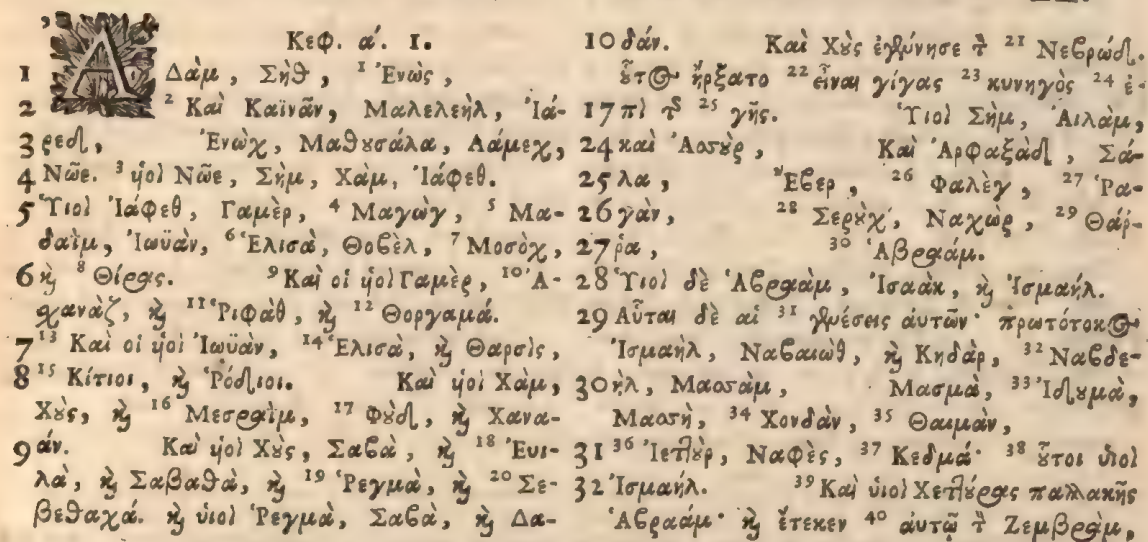 Κεφ. α'. I.
1 ἈΔὰμ, Σὴθ, ¹ Ἐνὼς,
2 ² Καὶ Καϊνᾶν, Μαλελεὴλ, Ἰά-
3 ρεδ, Ἐνὼχ, Μαθυσάλα, Λάμεχ,
4 Νῶε. ³ ὑοὶ Νῶε, Σὴμ, Χὰμ, Ἰάφεθ.
5 Ὑιοὶ Ἰάφεθ, Γαμὲρ, ⁴ Μαγὼγ, ⁵ Μα-
δαῒμ, Ἰωϋὰν, ⁶ Ἐλισὰ, Θοβὲλ, ⁷ Μοσὸχ,
6 ϗ ⁸ Θίρας. ⁹ Καὶ οἱ ὑοὶ Γαμὲρ, ¹⁰ Ἀ-
χανὰζ, ϗ ¹¹ Ῥιφὰθ, ϗ ¹² Θοργαμά.
7 ¹³ Καὶ οἱ ὑοὶ Ἰωϋὰν, ¹⁴ Ἐλισὰ, ϗ Θαρσὶς,
8 ¹⁵ Κίτιοι, ϗ Ῥόδιοι. Καὶ ὑοὶ Χὰμ,
Χȣ̀ς, ϗ ¹⁶ Μεσραῒμ, ¹⁷ Φȣ̀δ, ϗ Χανα-
9 άν. Καὶ ὑοὶ Χȣ̀ς, Σαβὰ, ϗ ¹⁸ Ἐυι-
λὰ, ϗ Σαβαθὰ, ϗ ¹⁹ Ῥεγμὰ, ϗ ²⁰ Σε-
βεθαχά. ϗ ὑιοὶ Ῥεγμὰ, Σαβὰ, ϗ Δα-
10 δάν. Καὶ Χȣ̀ς ἐγέννησε τ̀ ²¹ Νεβρώδ.
ȣ̓͂τος ἤρξατο ²² εἶναι γίγας ²³ κυνηγὸς ²⁴ ἐ-
17 πὶ τῆς ²⁵ γῆς. Ὑιοὶ Σὴμ, Ἀιλὰμ,
24 καὶ Ἀσσȣ̀ρ, Καὶ Ἀρφαξὰδ, Σά-
25 λα, Ἔβερ, ²⁶ Φαλὲγ, ²⁷ Ῥα-
26 γὰν, ²⁸ Σερȣ̀χ, Ναχὼρ, ²⁹ Θάῤ-
27 ῥα, ³⁰ Ἀβραάμ.
28 Ὑιοὶ δὲ Ἀβραὰμ, Ἰσαὰκ, ϗ Ἰσμαήλ.
29 Αὗται δὲ αἱ ³¹ γενέσεις ἀυτῶν· πρωτότοκος
Ἰσμαὴλ, Ναβαιὼθ, ϗ Κηδὰρ, ³² Ναβδε-
30 ὴλ, Μασσὰμ, Μασμὰ, ³³ Ἰδȣμὰ,
Μασσὴ, ³⁴ Χονδὰν, ³⁵ Θαιμὰν,
31 ³⁶ Ἰεττȣ̀ρ, Ναφὲς, ³⁷ Κεδμά· ³⁸ ȣ̓͂τοι ὑιοὶ
32 Ἰσμαήλ. ³⁹ Καὶ ὑιοὶ Χεττȣ́ρας παλλακῆς
Ἀβραάμ· ϗ ἔτεκεν ⁴⁰ ἀυτῷ τ̀ Ζεμβρὰμ,